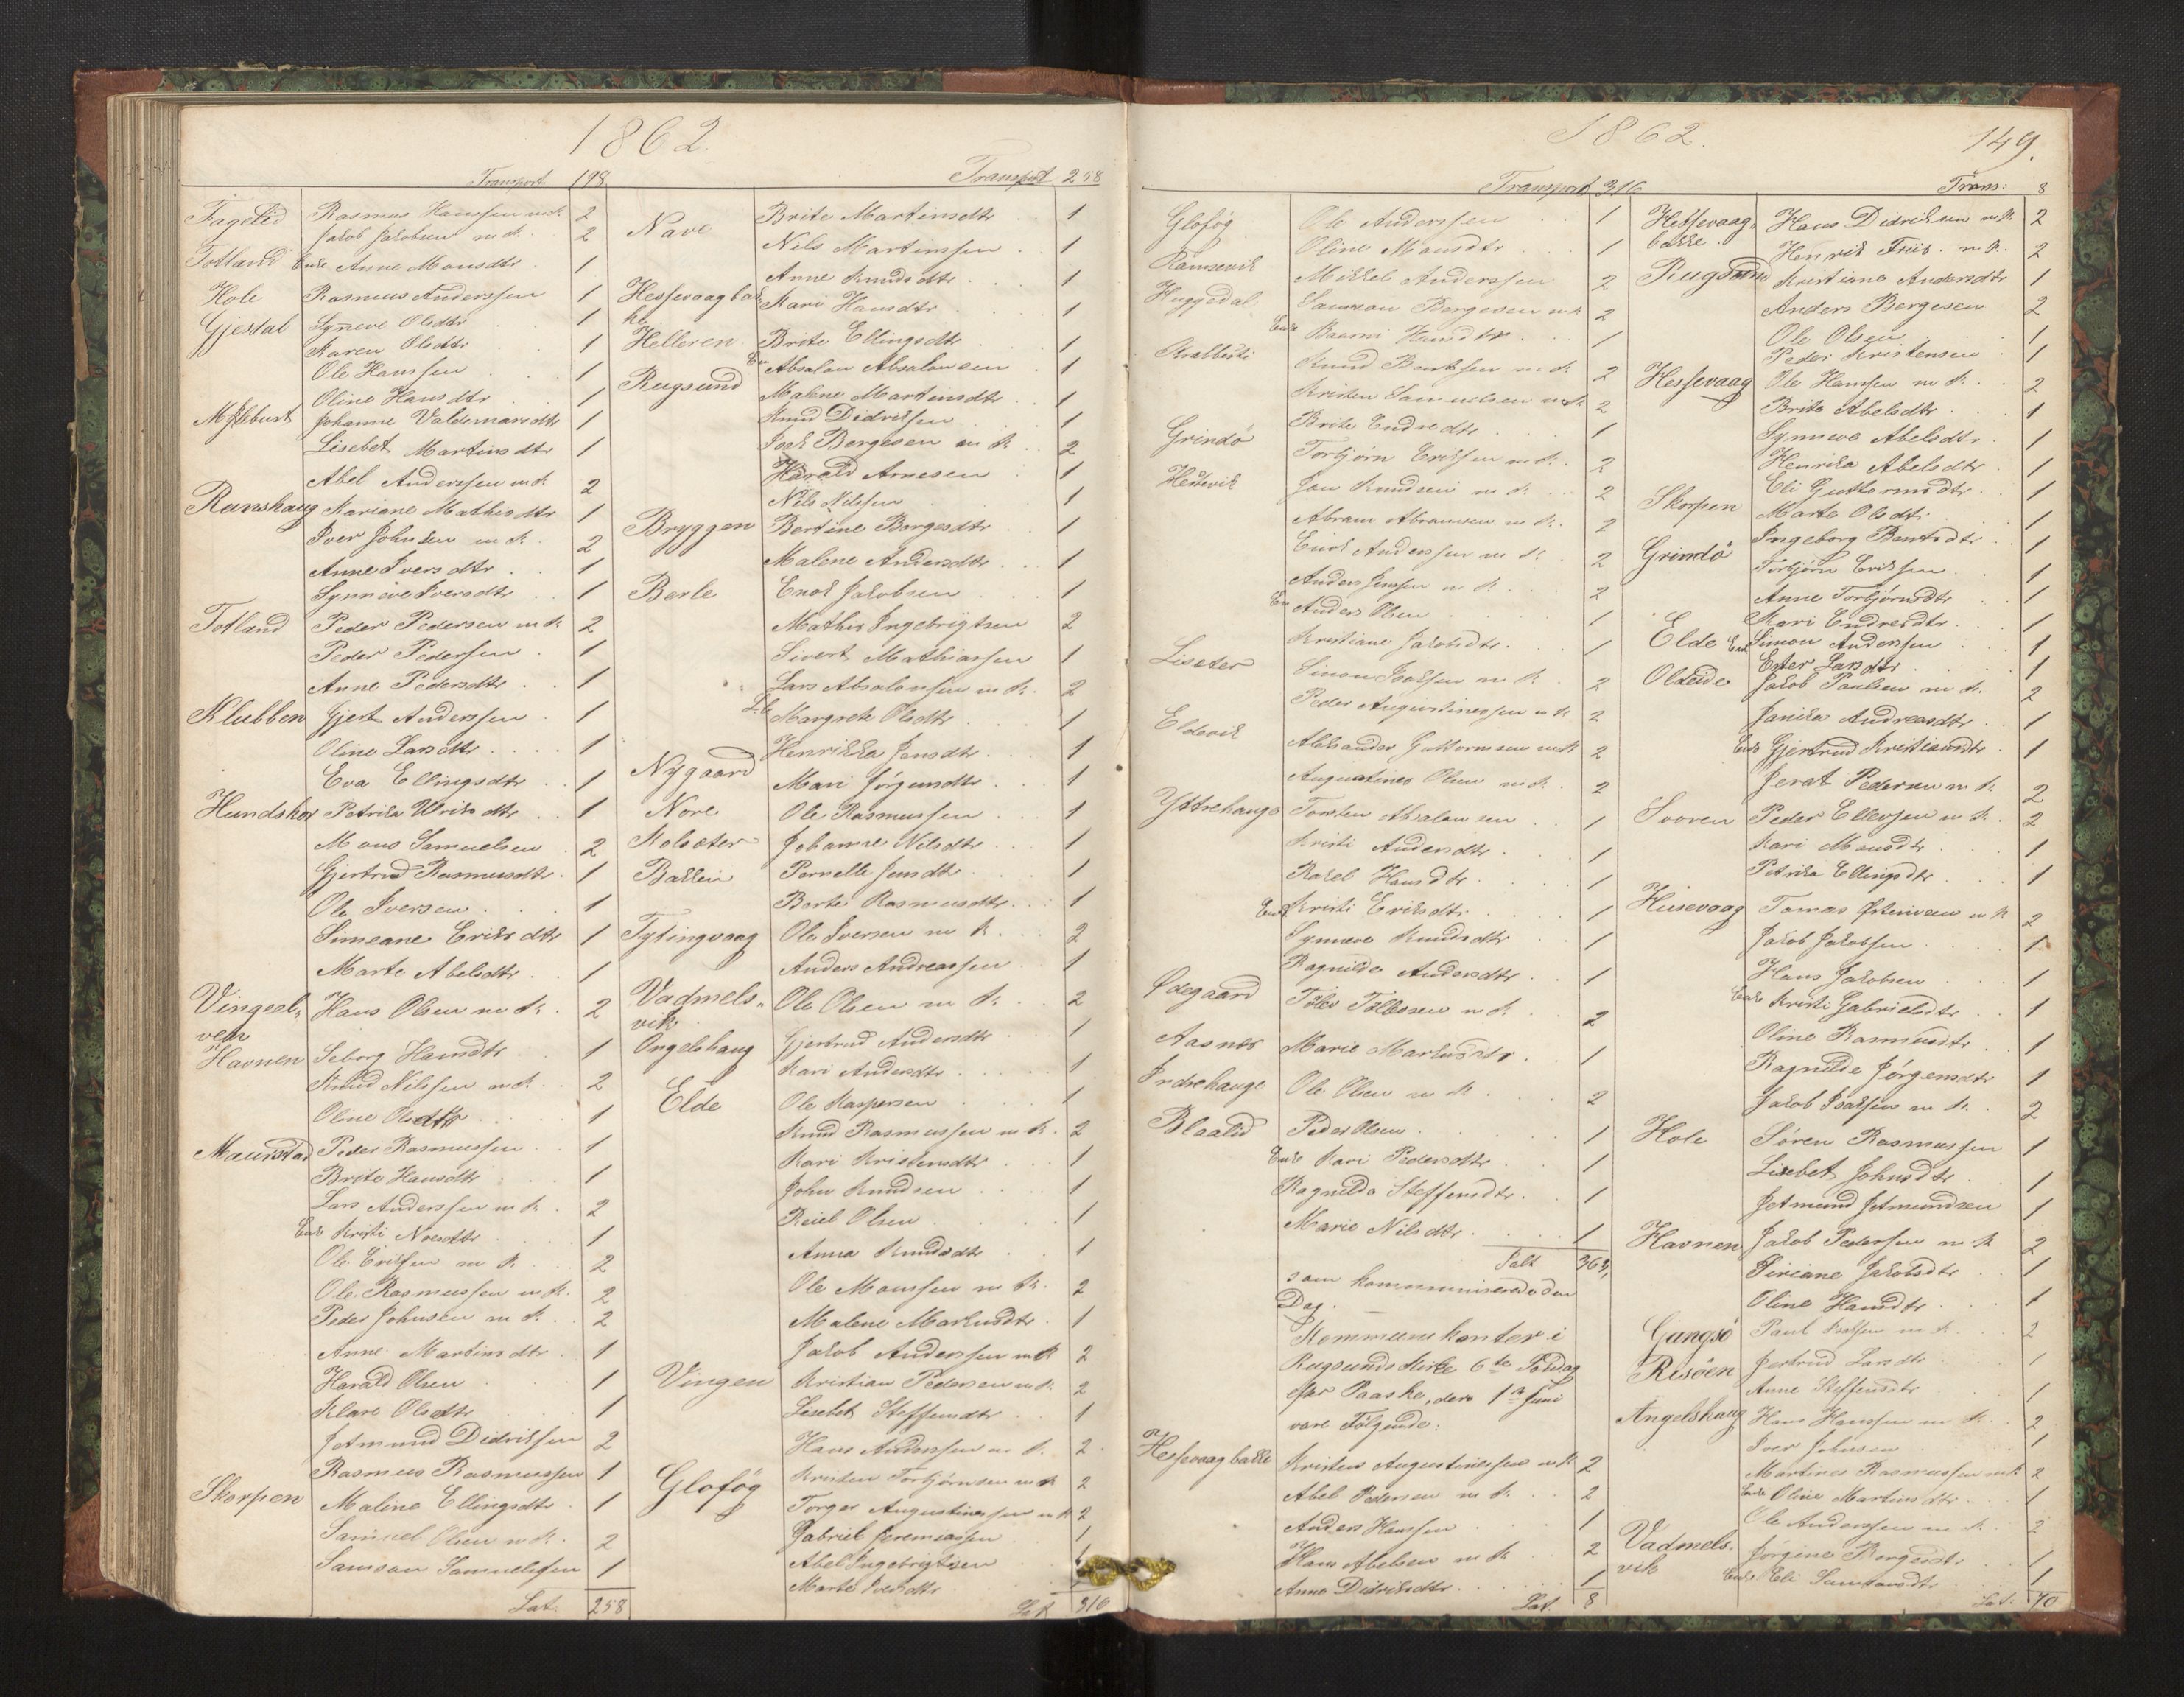 1862.
Transport. 198
Fagelid Rasmus Hanssen m. K. 2
Jakob Jakobsen m. K. 2
Totland Enke Anne Monsdtr. 1
Hole Rasmus Anderssen 1
Gjestal Synneve Olsdtr 1
Karen Olsdtr 1
Ole Hanssen 1
Oline Hansdtr 1
Myklebust Johanne Valdemarsdtr 1
Lisebet Martinsdtr 1
Abel Anderssen m. K. 2
Runshaug Mariane Mathisdtr 1
Iver Johnsen m. K. 2
Anne Iversdtr. 1
Synneve Iversdtr 1
Totland Peder Pedersen m. K. 2
Peder Pedersen. 1
Anne Pedersdtr. 1
Klubben Gjert Anderssen 1
Oline Larsdtr. 1
Eva Ellingsdtr. 1
Hundskor Petrika Ulriksdtr. 1
Mons Samuelsen 2
Gjertrud Rasmusdtr. 1
Ole Iversen 1
Simeane Eriksdtr 1
Marte Abelsdtr. 1
Vingeel- Hans Olsen m. K. 2
ven
Havnen Seborg Hansdtr. 1
Knud Nilssen m. K. 2
Oline Olsdtr. 1
Maurstad Peder Rasmussen 1
Brite Hansdtr 1
Lars Anderssen m. K. 2
Enke Kristi Noesdtr 1
Ole Erikssen m. K. 2
Ole Rasmussen m. K. 2
Peder Johnsen m. K. 2
Anne Martinsdtr. 1
Harald Olsen 1
Klare Olsdtr 1
Jetmund Didrikssen 2
Rasmus Rasmussen 1
Skorpen Malene Ellingsdtr. 1
Samuel Olsen m. K. 2
Samson Samuelssen 1
Lat. 258
Transport 258
Nave Brite Martinsdtr 1
Nils Martinssen 1
Anne Knudsdtr. 1
Hessevaagbak Kari Hansdtr 1
ke
Helleren Brite Ellingsdtr 1
Absalon Absalonsen 1
Rugsund Malene Martinsdtr. 1
Knud Didrikssen 1
Isak Borgesen m. K. 2
Harald Arnesen 1
Nils Nilssen 1
Bryggen Bertine Borgesdtr 1
Malene Andersdtr. 1
Berle Enok Jakobsen 1
Mathis Ingebrigtsen 2
Sivert Mathiassen 1
Lars Absalonsen m. K. 2
Margrete Olsdtr. 1
Henrikka Jonsdtr. 1
Nygaard Mari Jørgensdtr. 1
Nore Ole Rasmussen 1
Kolseter Johanne Nilsdtr. 1
Bakken Pernelle Jensdtr. 1
Berte Rasmusdtr. 1
Tytingvaag Ole Iversen m. K. 2
Anders Andreassen 1
Vadmels- Ole Olsen m. K. 2
vik
Ongelshaug Gjertrud Andersdtr 1
Kari Andersdtr. 1
Elde Ole Kaspersen 1
Knud Rasmussen m. K. 2
Kari Kristensdtr 1
John Knudsen 1
Reiel Olsen 1
Anna Knudsdtr 1
Ole Monssen m. K. 2
Malene Markusdtr. 1
Jakob Anderssen m. K. 2
Vingen Kristian Pedersen m. K. 2
Lisebet Steffensdtr 1
Hans Anderssen m. K. 2
Gloføg Kristen Torbjørnsen m. K. 2
Torger Augustinussen m. K. 2
Gabriel Jeremiassen 1
Abel Ingebrigtsen
Marte Iversdtr
Lat 316
1862. 149.
Transport 316
Gloføg Ole Anderssen 1
Oline Monsdtr 1
Ramsevik Mikkel Anderssen 2
Huggedal Samson Borgesen m. K. 2
Enke Hansdtr. 1
Kralbesti Knud Bentssen m. K. 2
Kristen Samuelsen m. K. 2
Brite Endredtr 1
Grindø Torbjørn Erikssen m. K. 2
Hestevik Jon Knudsen m. K. 2
Abram Abramsen m. K. 2
Enok Anderssen m. K. 2
Anders Jenssen m. K. 2
Anders Olsen 1
Kristiane Jakobsdtr. 1
Liseter Simon Isakssen m. K. 2
Peder Augustinussen m. K. 2
Eldevik Aleksander Guttormsen m. K. 2
Augustinus Olsen m. K. 2
Yttrehauge Torsten Absalonsen 1
Kristi Andersdtr. 1
Rakel Hansdtr. 1
Enke Kristi Eriksdtr. 1
Synneve Knudsdtr 1
Ragnilde Andersdtr. 1
Ødegaard Tolles Tollessen m. K. 2
Aasnes Marie Markusdtr. 1
Indrehauge Ole Olsen m. K. 2
Blaalid Peder Olsen. 1
Enke Kari Pedersdtr. 1
Ragnilda Steffensdtr. 1
Marie Nilsdtr. 1
Talt 363,
som kommunicerede den
Dag.
Kommunikanter i
Rugsunds Kirke 6te Søndag
efter Paaske, den 1ste Juni
vare Følgende:
Hessevaagbakke Kristen Augustinussen m. K. 2
Abel Pedersen m. K. 2
Anders Hanssen 1
Hans Abelsen m. K. 2
Anne Didriksdtr. 1
Lat. 8
Trans: 8
Hessevaag- Hans Didriksen m. K. 2
bakke. Henrik Friis. m. K. 2
Rugsund Kristiane Andersdtr 1
Anders Bergesen 2
Ole Olsen 1
Peder Kristensen 1
Hessevaag Ole Hanssen m. K. 2
Brite Abelsdtr. 1
Synneve Abelsdtr. 1
Henrika Abelsdtr. 1
Eli Guttormsdtr. 1
Skorpen Marte Olsdtr. 1
Ingeborg Bentsdtr. 1
Grindø Torbjørn Erikssen. 1
Anne Torbjørnsdtr 1
Kari Endresdtr. 1
Elde Simon Anderssen 1
Ester Larsdtr 1
Oldeide Jakob Paulsen m. K. 2
Janika Andreasdtr 1
Enke Gjertrud Kristiansdtr. 1
Jerat Pedersen m. K. 2
Svoren Peder Ellevssen m. K. 2
Kari Monsdtr. 1
Petrika Ellingsdtr. 1
Husevaag Tomas Østensen m. K. 2
Jakob Jakobssen 1
Hans Jakobsen 1
Enke Kristi Gabrielsdtr 1
Oline Rasmusdtr. 1
Ragnilde Jørgensdtr 1
Jakob Isakssen m. K. 2
Hole Søren Rasmussen 1
Lisebet Johnsdtr. 1
Jetmund Jetmundsen 1
Havnen Jakob Pederssen m. K. 2
Siriane Jakobsdtr 1
Oline Hansdtr. 1
Gangsø Paul Isakssen m. K. 2
Risøen Jertrud Larsdtr 1
Anne Steffensdtr 1
Angelshaug Hans Hanssen m. K. 2
Iver Johnsen 1
Martines Rasmussen m. K. 2
Enke Oline Martinsdtr. 1
Ole Anderssen m. K. 2
Vadmels- Jørgine Borgesdtr 1
vik Enke Eli Samsonsdtr. 1
Lat. 70